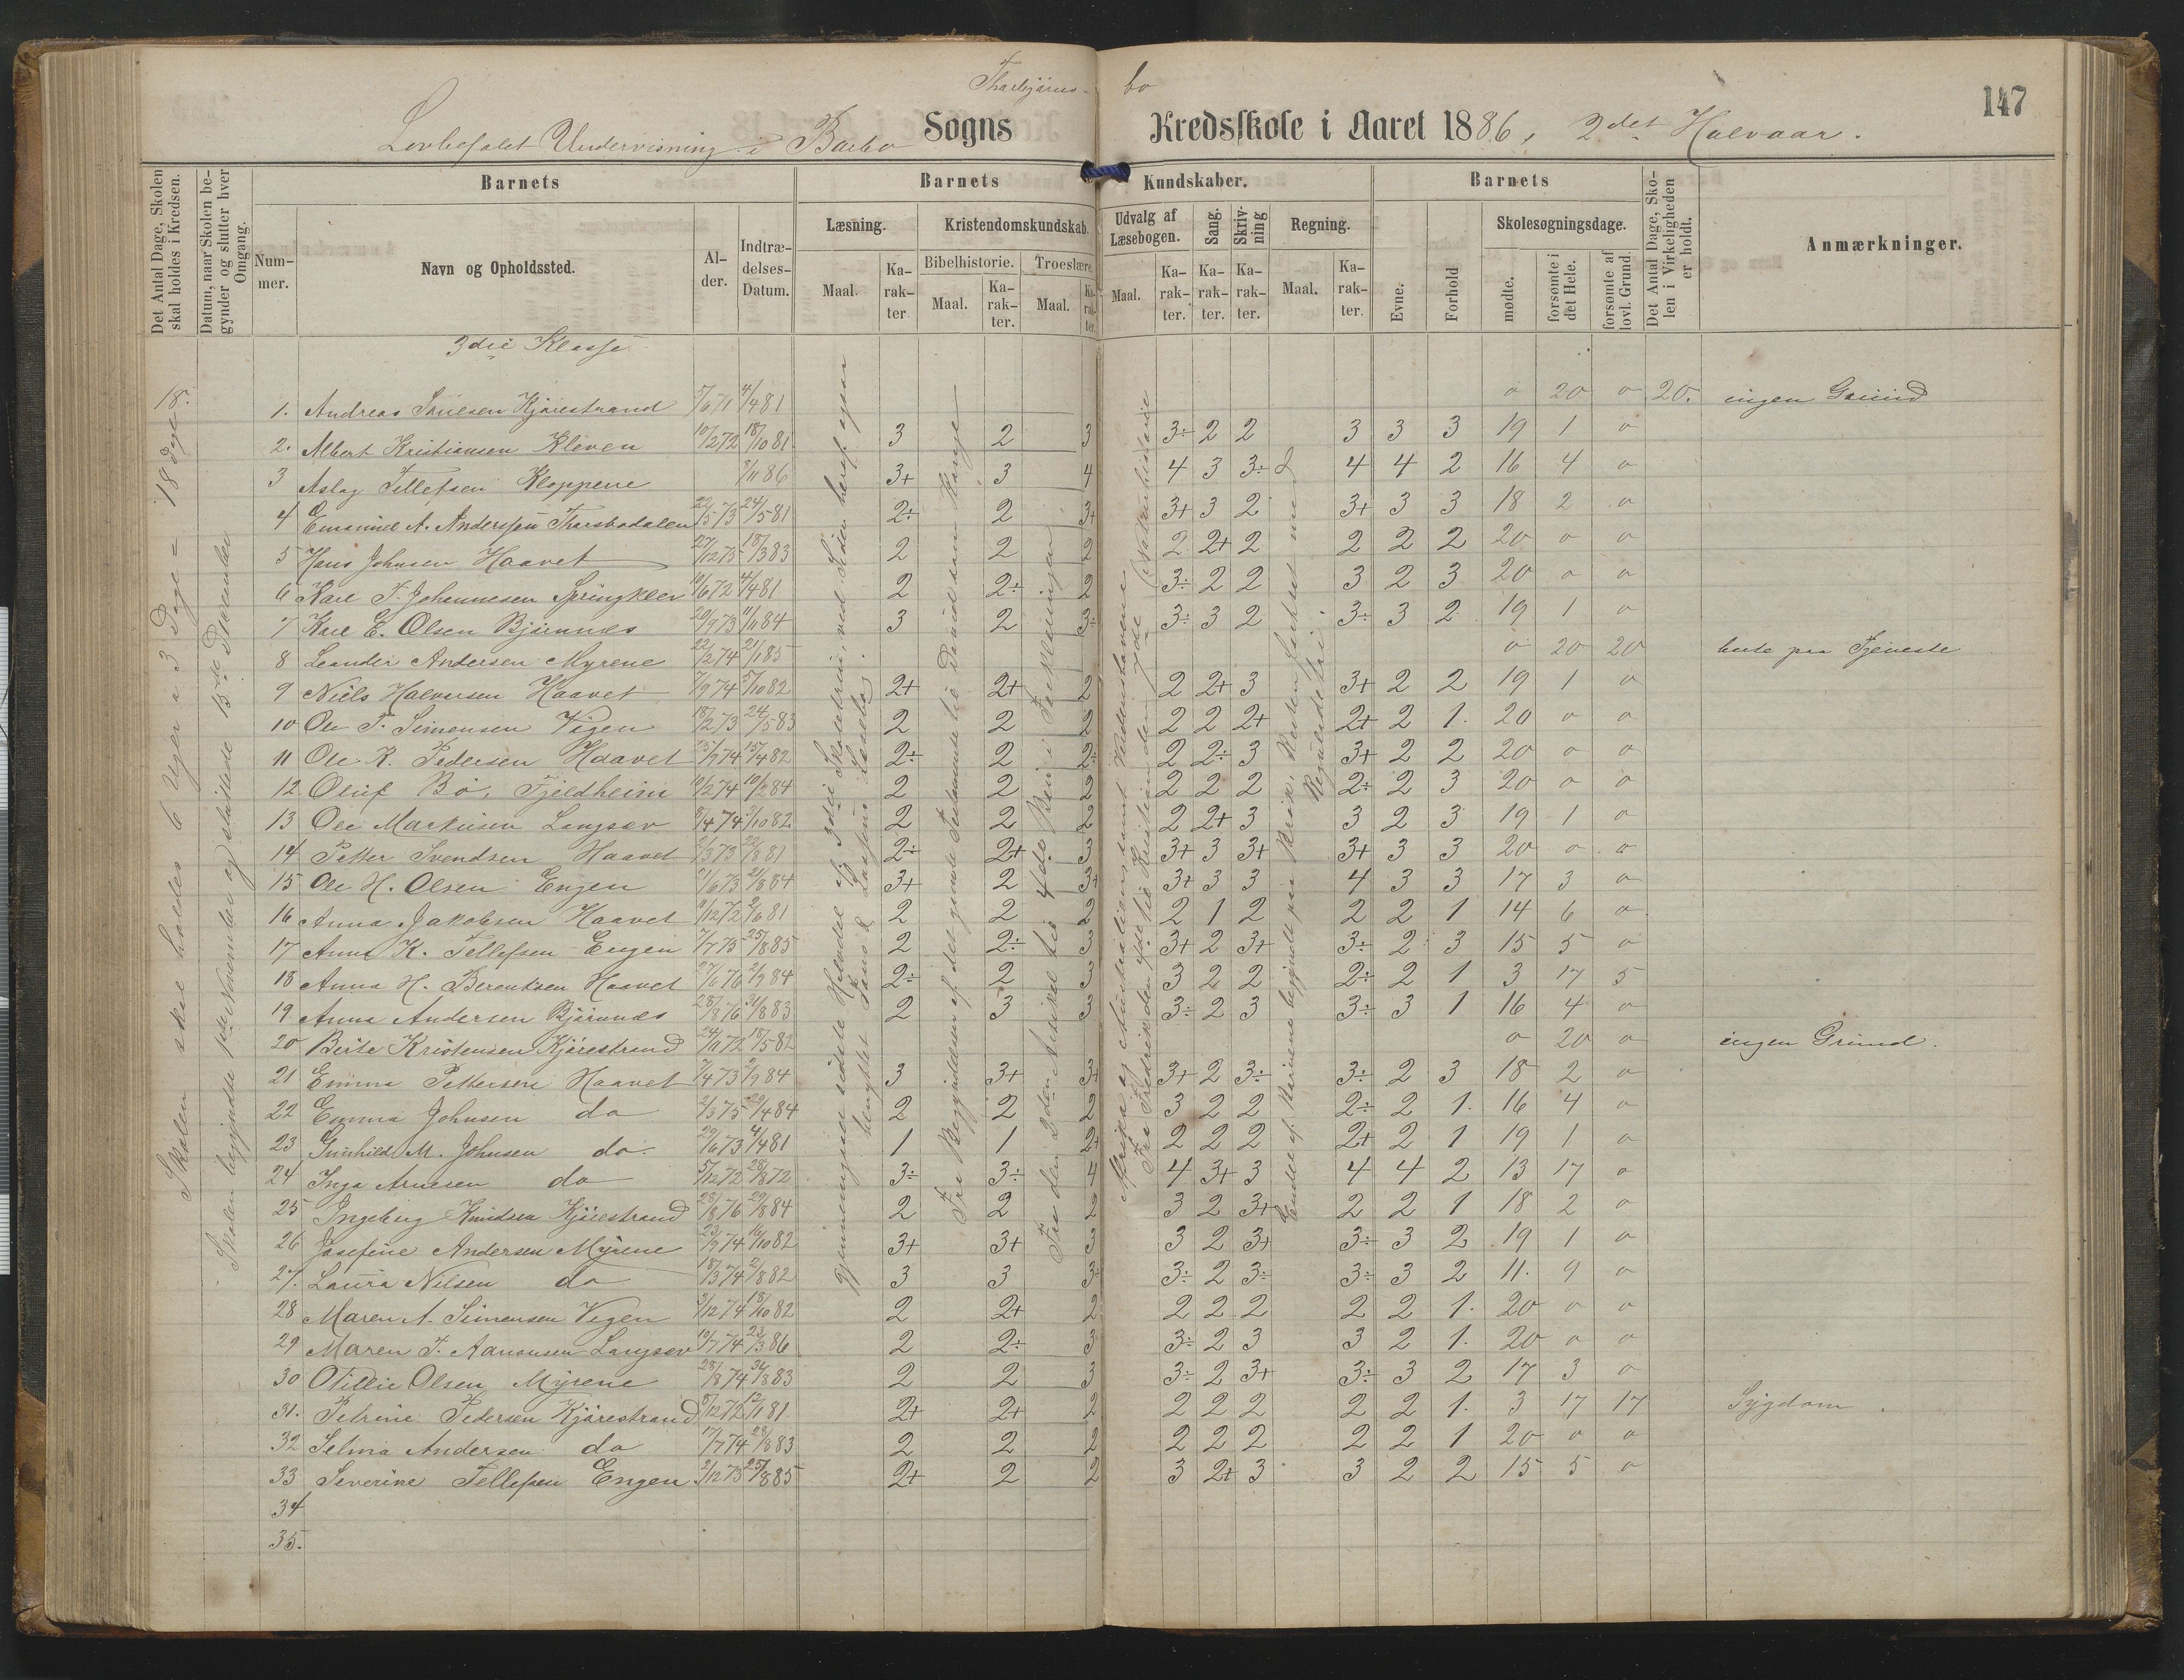 Thorbjørns- bo
147
Lovbefalet Undervisning i Barbo Sogns Kredsskole i Aaret 1886, 2det Halvaar.
Det Antal Dage, Skolen skal holdes i Kredsen.
Datum, naar Skolen begynder og slutter hver Omgang.
Barnets
Barnets Kundskaber.
Barnets
Det Antal Dage, Skolen i Virkeligheden er holdt.
Anmærkninger.
Nummer.
Navn og Opholdssted.
Alder.
Indtrædelses-Datum.
Læsning.
Kristendomskundskab.
Udvalg af Læsebogen.
Sang.
Skrivning
Regning.
Evne.
Forhold
Skolesøgningsdage.
Bibelhistorie.
Troeslære.
Maal.
Karakter.
Maal.
Karakter.
Maal.
Karakter.
Maal.
Karakter.
Karakter.
Karakter.
Maal.
Karakter.
mødte.
forsømte i det Hele.
forsømte af lovl. Grund.
3die Klasse
18.
Skolen skal holdes 6 Uger a 3 Dage = 18 Dage
Skolen begyndte 1ste November og sluttede 13de December
Fra Fredrik den 4de til Kristian den 7de
1. Andreas Kjørestrand 5/6 71 4/4 81 o 20 o 20. ingen Grund
2. Albert Kristiansen Kleven 10/2 72 18/10 81 3 2 3 3÷ 2 2 3 3 3 19 1 o
3 Aslag Tellefsen Kloppene 3+ 3 4 4 3 3÷ 4 4 2 16 4 o
4 Emanuel A. Anderssen Tharsbodalen 22/5 73 24/5 81 2÷ 2 3+ 3+ 3 2 3+ 3 3 18 2 o
5 Hans Johnsen Haavet 27/12 73 18/3 83 2 2 2 2 2+ 2 2 2 2 20 o o
6 Karl T. Johannesen Springklev 10/6 72 4/4 81 2 2÷ 2 3÷ 2 2 3 2 3 20 o o
7 Karl E. Olsen Bjønnæs 20/9 73 11/1 84 3 2 3÷ 3÷ 3 2 3÷ 3 2 19 1 o
8 Leander Andersen Myrene 22/2 74 21/1 85 o 20 20 borte paa Tjeneste
9 Niels Halvorsen Haavet 7/9 74 5/10 82 2+ 2+ 2 2 2+ 3 3+ 2 2 19 1 o
10 Ole T. Simensen Vigen 18/2 73 24/5 83 2 2 2 2 2 2+ 2+ 2 1. 20 o o
11 Ole K. Pedersen Haavet 25/9 74 15/4 82 2÷ 2 2÷ 2 2÷ 3 3+ 2 2 20 o o
12. Oluf Bö, Fjeldheim 10/2 74 10/2 84 2 2 2 2 2 2 2÷ 2 3 20 o o
13 Ole Markusen Langsev 8/4 74 2/10 82 2 2 2 2 2+ 3 3 2 3 19 1 o
14 Petter Svendsen Haavet 2/3 73 22/8 81 2÷ 2+ 3 3+ 3 3+ 3+ 3 3 20 o o
15 Ole H. Olsen Engen 21/6 73 2/8 84 3+ 2 3+ 3+ 3 3 4 3 3 17 3 o
16 Anna Jakobsen Haavet 11/12 72 2/6 81 2 2 2 2 1 2 2 2 1 14 6 o
17 Anna K. Tellefsen Engen 7/7 75 25/8 85 2 2÷ 3 3+ 2 3+ 3÷ 2 3 15 5 o
18 Anna H. Berentsen Haavet 27/6 76 2/9 84 2÷ 2 3 3 2 2 2÷ 2 1 3 17 5
19 Anna Andersen Bjönnæs 28/8 76 31/8 83 2 3 3 3÷ 2 3 3÷ 3 1 16 4 o
20 Berte Kristensen Kjörestrand 24/11 72 18/5 82 o 20 o ingen Grund.
21 Emma Pettersen Haavet 7/4 73 2/9 84 3 3+ 3+ 3+ 2 3÷ 3÷ 2 3 18 2 o
22 Emma Johnsen do 2/3 75 29/4 84 2 2 2 3 2 2 2÷ 2 1. 16 4 o
23 Gunhild M. Johnsen do. 29/6 73 4/4 81 1 1 2+ 2 2 2 2+ 2 1 19 1 o
24 Inga Arnesen do 5/12 72 3÷ 3÷ 4 4 3+ 3 4 4 2 13 17 o
25 Ingeborg Knudsen Kjörestrand 28/8 76 29/8 84 2 2 2 3 2 3+ 2 2 1 18 2 o
26 Josefine Andersen Myrene 23/9 74 16/10 82 3+ 3+ 3 3 2 3+ 3÷ 3 2 19 1 o
27. Laura Nilsen do 18/3 74 2/8 82 3 3 3÷ 3÷ 2 3÷ 3÷ 3 2 11. 9 o
28 Maren A. Simensen Vigen 3/12 74 18/10 82 2 2+ 2 2 2 2 2 2 1. 20 o o
29 Maren T. Aanonsen Langsev 10/7 74 23/3 86 2 2÷ 3 3÷ 2 3 3 2 1. 20 o o
30 Otillie Olsen Myrene 28/8 74 31/8 83 2 2 3 3÷ 2 3+ 3÷ 3 2 17 3 o
31. Petrine Pedersen Kjörestrand 8/12 72 12/11 81. 2+ 2+ 2 2 2 2 2 2 1. 3 17 17 Sygdom.
32 Selma Andersen do 17/7 74 28/8 83 2 2 2 2 2 2 2 2 1 20 o o
33 Severine Tellefsen Engen 2/12 73 25/8 85 2+ 2 2 3 2+ 3 3 2 2 15 5 o
34
35.